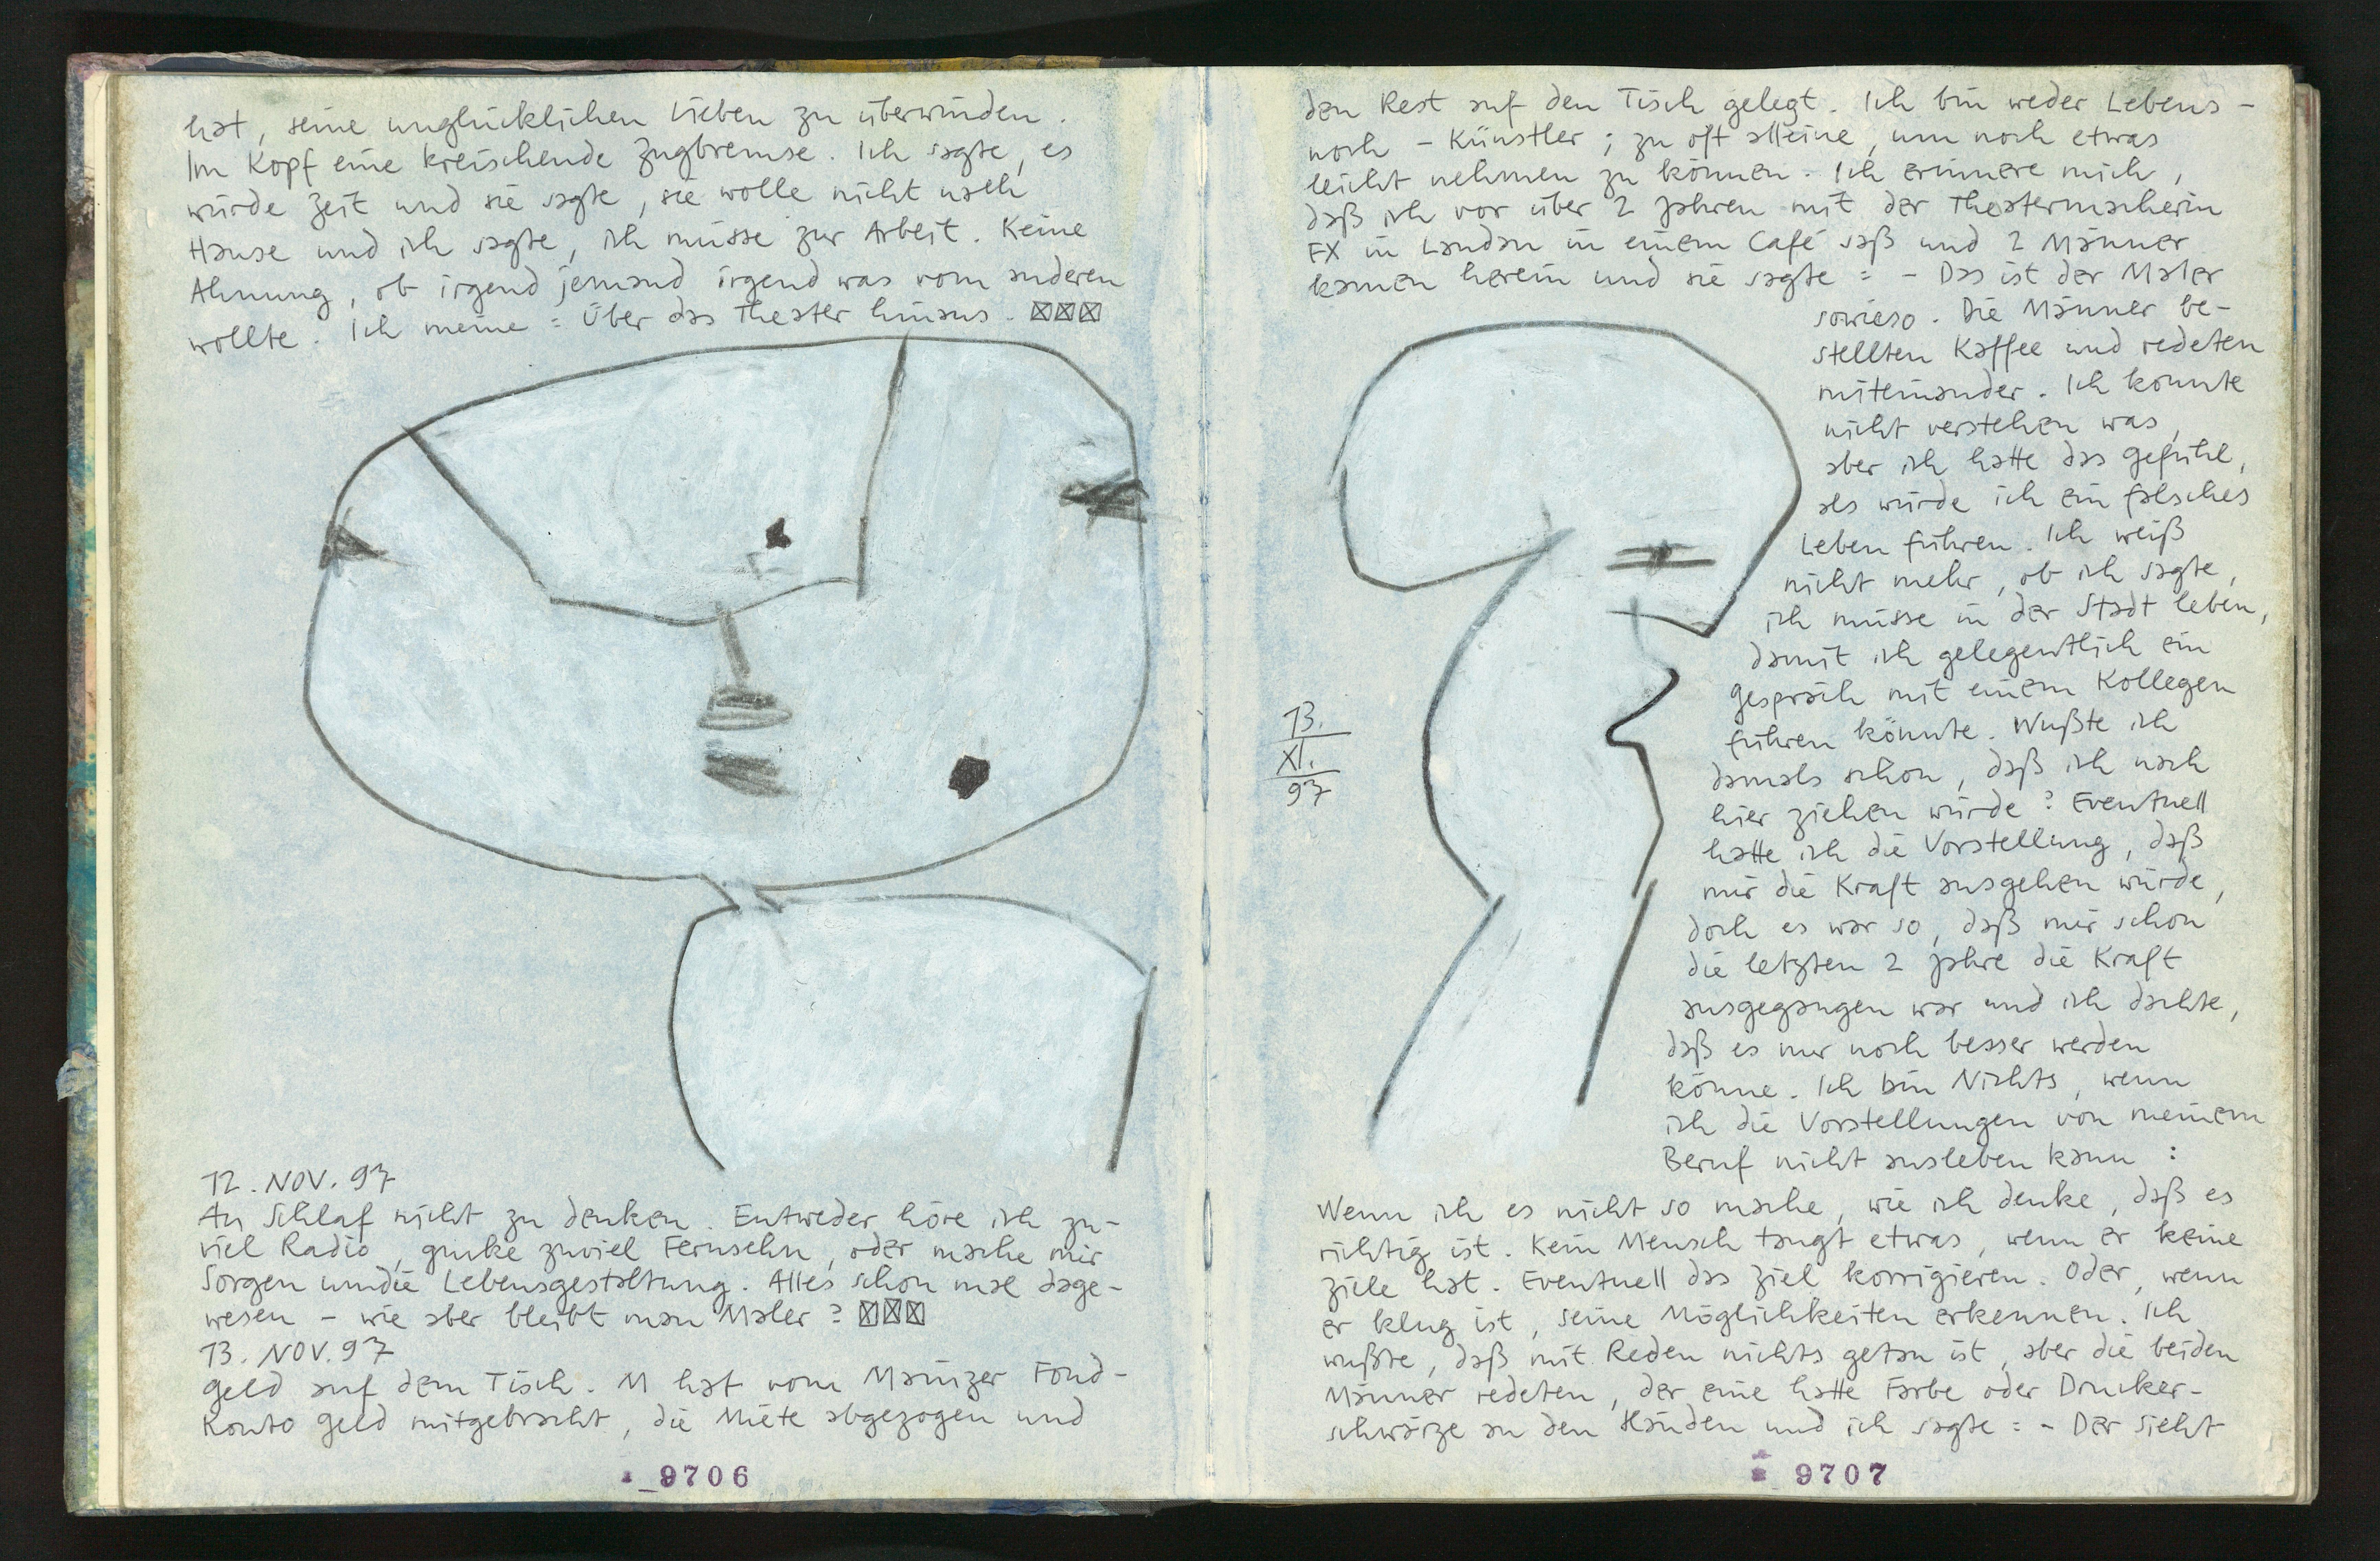 hat, seine unglücklichen Lieben zu überwinden.
Im Kopf eine kreischende Zugbremse. Ich sagte, es
würde Zeit und sie sagte, sie wolle nicht nach
Hause und ich sagte, ich müsse zur Arbeit. Keine
Ahnung, ob irgend jemand irgend was vom anderen
wollte. Ich meine: Über das Theater hinaus. ☒☒☒
12. NOV. 97
An Schlaf nicht zu denken. Entweder höre ich zu-
viel Radio, gucke zuviel Fernsehn, oder mache mir
Sorgen um die Lebensgestaltung. Alles schon mal dage-
wesen – wie aber bleibt man Maler? ☒☒☒
13. NOV. 97
Geld auf dem Tisch. M hat vom Mainzer Fond-
Konto Geld mitgebracht, die Miete abgezogen und
9706
den Rest auf den Tisch gelegt. Ich bin weder Lebens-
noch -Künstler; zu oft alleine, um noch etwas
leicht nehmen zu können. Ich erinnere mich,
daß ich vor über 2 Jahren mit der Theatermacherin
FX in Landau in einem Café saß und 2 Männer
kamen herein und sie sagte: – Das ist der Maler
sowieso. Die Männer be-
stellten Kaffee und redeten
miteinander. Ich konnte
nicht verstehen was,
aber ich hatte das Gefühl,
als würde ich ein falsches
Leben führen. Ich weiß
nicht mehr, ob ich sagte,
ich müsse in der Stadt leben,
damit ich gelegentlich ein
Gespräch mit einem Kollegen
führen könnte. Wußte ich
damals schon, daß ich nach
hier ziehen würde? Eventuell
hatte ich die Vorstellung, daß
mir die Kraft ausgehen würde,
doch es war so, daß mir schon
die letzten 2 Jahre die Kraft
ausgegangen war und ich dachte,
daß es nur noch besser werden
könne. Ich bin Nichts, wenn
ich die Vorstellungen von meinem
Beruf nicht ausleben kann:
Wenn ich es nicht so mache, wie ich denke, daß es
richtig ist. Kein Mensch taugt etwas, wenn er keine
Ziele hat. Eventuell das Ziel korrigieren. Oder, wenn
er klug ist, seine Möglichkeiten erkennen. Ich
wußte, daß mit Reden nichts getan ist, aber die beiden
Männer redeten, der eine hatte Farbe oder Drucker-
schwärze an den Händen und ich sagte: – Der sieht
13.
XI.
97
9707